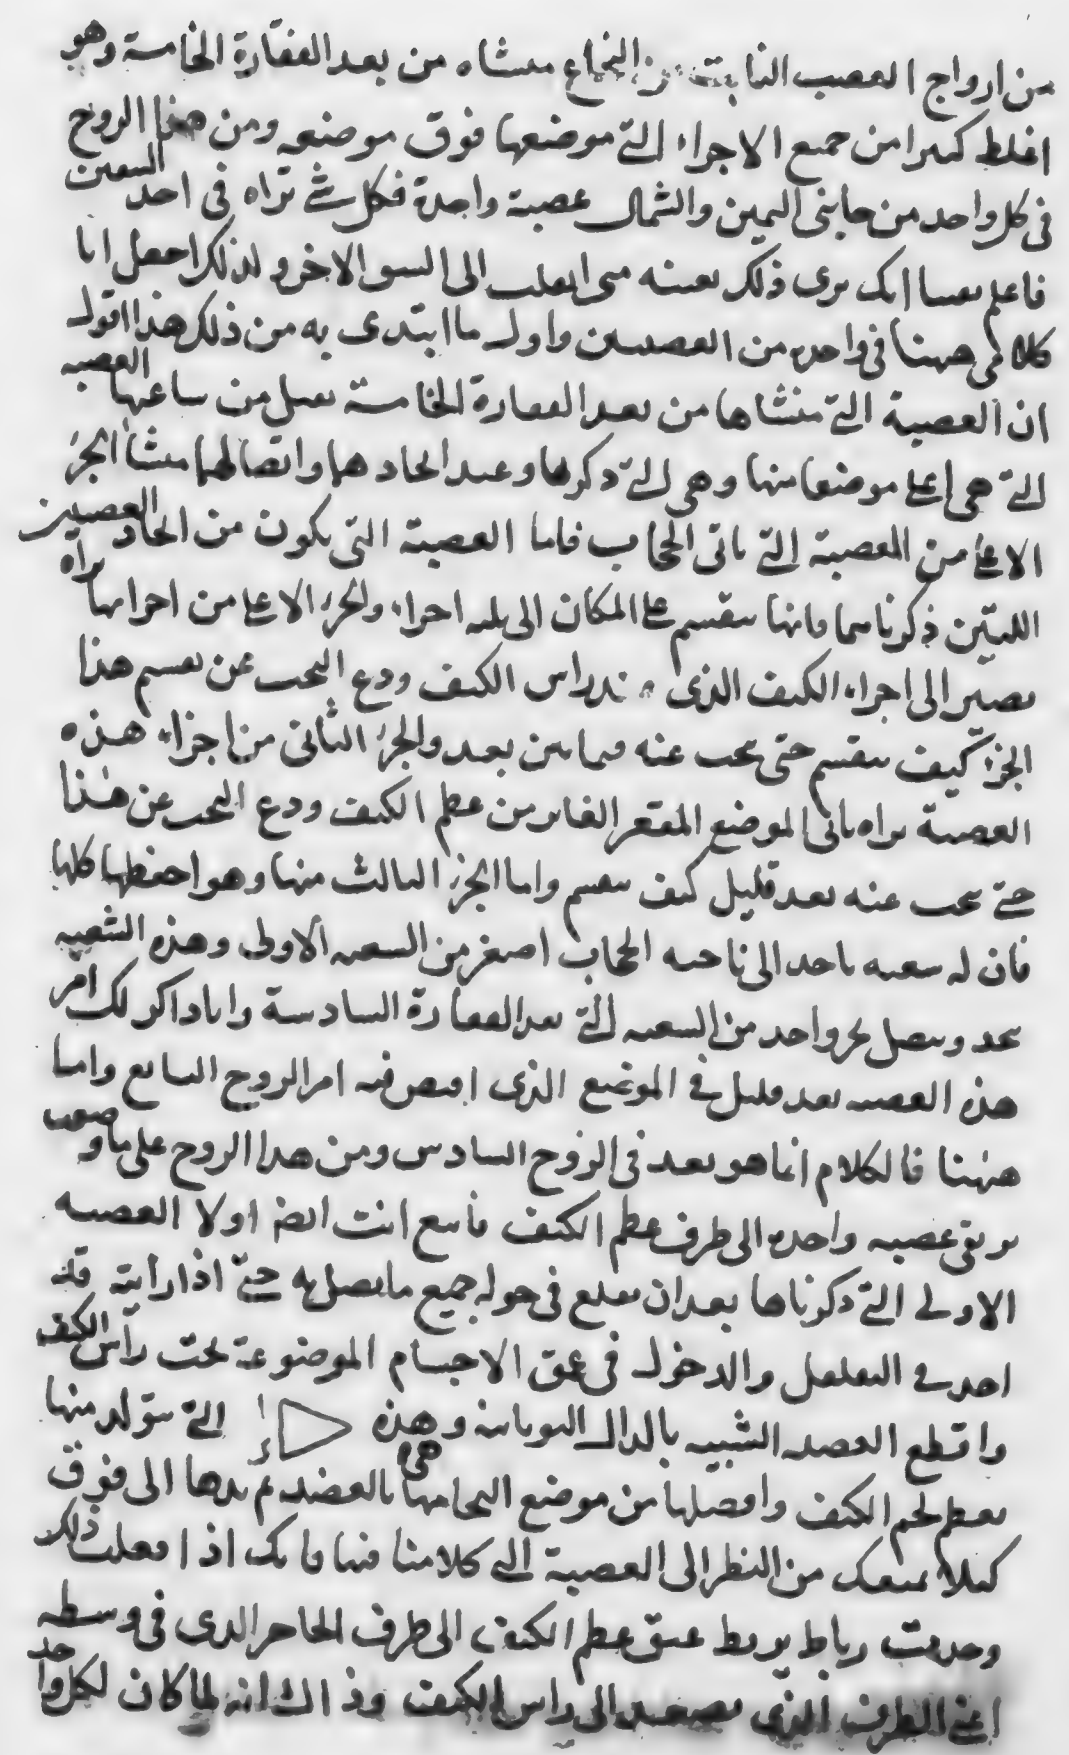 من ازواج العصب النابت من النخاع منشاه من بعد الفقارة الخامسة وهو
اغلظ كثيرا من جميع الاجزاء التي موضعها فوق موضعه ومن هذا الزوج
في كل واحد من جانبي اليمين والشمال عصبة واحدة فكل شي تراه في احد الشقين
فاعلم يقينا انك ترى ذلك بعينه متى انقلبت الى الشق الاخر ولذلك اجعل انا
كلامي ههنا في واحدة من العصبتين واول ما ابتدى به من ذلك هذا اقول
ان العصبة التي منشاها من بعد الفقارة الخامسة من ساعتها العصبه
التي هي اعلى موضعا منها وهي التي ذكرها وعند اتحادهما واتصالهما منشأ الجزء
الاعلى من العصبة التي تاتي الحجاب فاما العصبة التي يكون من اتحاد العصبتين
اللتين ذكرناهما فانها تنقسم على المكان الى ثلثة اجزاء والجزء الاعلى من اجزايها تراه
يصير الى اجزاء الكتف الذي عند راس الكتف ودع البحث عن تقسيم هذا
الجزء كيف ينقسم حتى تبحث عنه فيما بعد والجزء الثاني من اجزاء هذه
العصبة تراه ياتي الموضع المقعر الغاير من عظم الكتف ودع البحث عن هذا
حتى تبحث عنه بعد قليل كيف ينقسم واما الجزء الثالث منها وهو احفظها كلها
فان له شعبه تاخذ الى ناحيه الحجاب اصغر من الشعبه الاولى وهذه الشعبه
تتحد وتتصل بجزو واحد من الشعبه التي بعد الفقارة السادسة وانا ذاكر لك امر
هذه العصبه بعد قليل في الموضع الذي اقتص فيه امر الزوج السابع واما
ههنا فالكلام انما هو بعد في الزوج السادس ومن هذا الزوج على ما وصفت
يرتقي عصبه واحدة الى طرف عظم الكتف فاتبع انت ايضا اولا العصبه
الاولى التي ذكرناها بعد ان تقلع في حوله جميع ما يتصل به حتى اذا رايته قد
اخذ في التغلغل والدخول في عمق الاجسام الموضوعة تحت رأس الكتف
واقطع العضلة الشبيه بالدال اليونانية وهذه هي التي يتولد منها
معظم لحم الكتف وافصلها من موضع التحامها بالعضد ثم مدها الى فوق
كيلا تمنعك من النظر الى العصبة التي كلامنا فيها فانك اذا فعلت ذلك
وجدت رباط يربط عنق عظم الكتف الى طرف الحاجز الذي في وسطه
اعني الطرف الذي يصعد الى راس الكتف وذلك انه لما كان لكل واحد